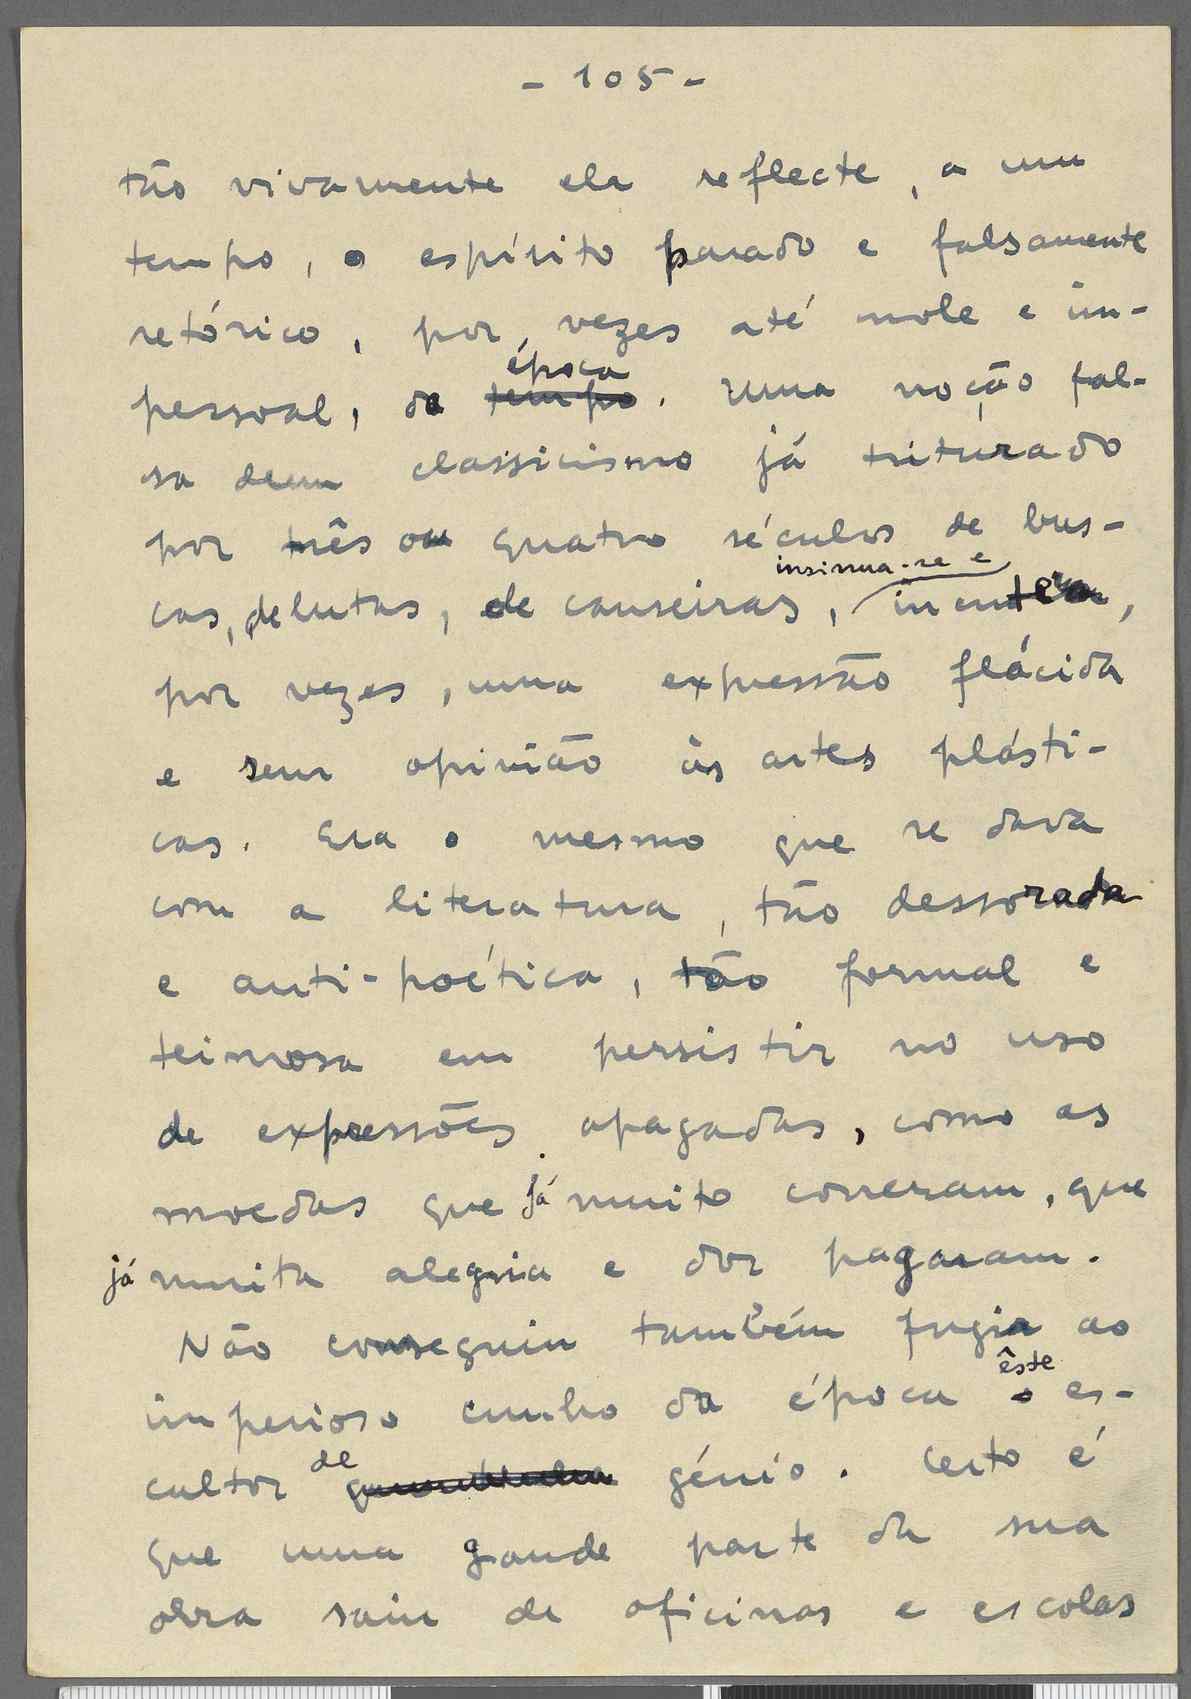 - 105 -
tão vivamente ela reflecte, a um
tempo, o espírito parado e falsamente
retórico, por vezes até mole e im-
época
pessoal, da tempo. Uma noção fal-
sa dum classicismo já triturado
por três ou quatro séculos de bus-
insinua-se e
cas, de lutas, de canseiras,
por vezes, uma expressão flácida
e sem opinião às artes plásti-
cas. Era o mesmo que se dava
com a literatura, tão dessorada
e anti-poética, tão formal e
teimosa em persistir no uso
de expressões apagadas, como as
moedas que já muito correram, que
já muita alegria e dor pagaram.
Não conseguiu também fugir ao
êste
imperioso cunho da época o es-
de
cultor génio. Certo é
que uma grande parte da sua
obra saiu de oficinas e escolas